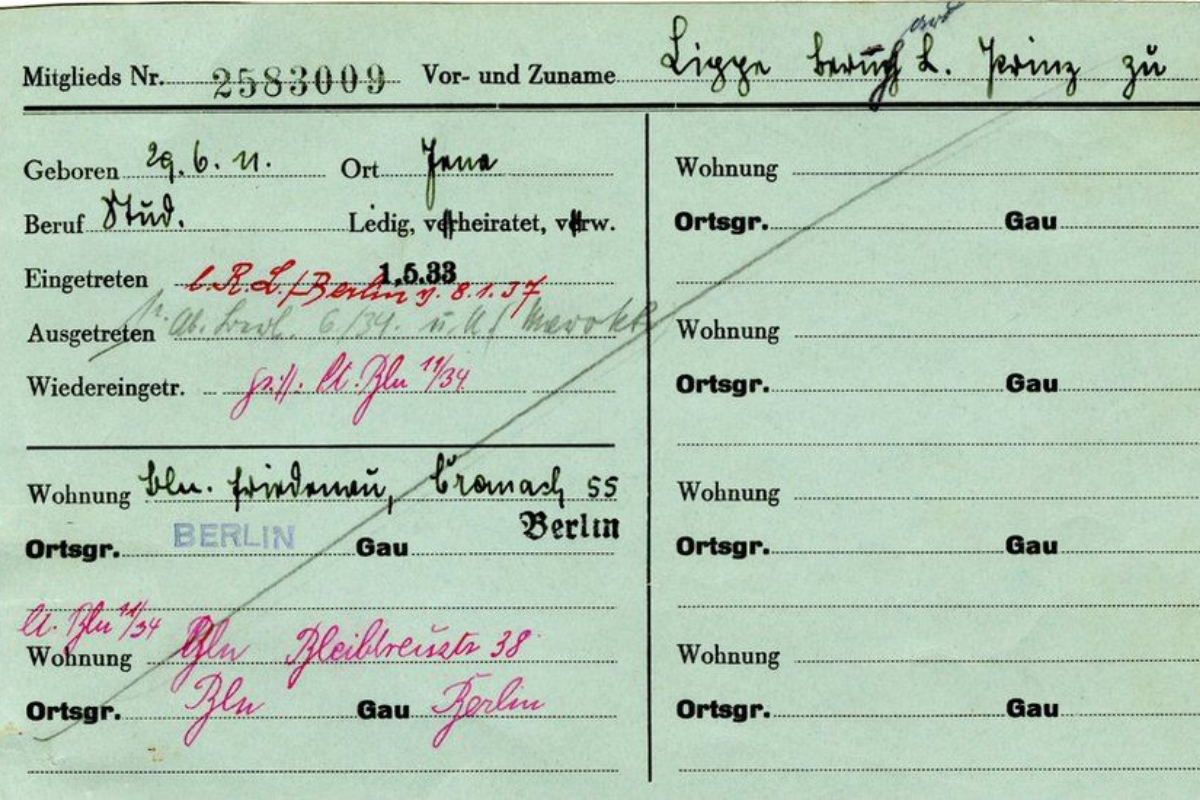 Mitglieds Nr. 2583009 Vor- und Zuname Lippe L. Prinz zu
Geboren 29. 6. 11. Ort Jena
Beruf Stud. Ledig, verheiratet, verw.
Eingetreten 1.5.33
b. R.L./Berlin v. 8.1.37
Ausgetreten 6/34.
Wiedereingetr. lt. Bln 11/34
Wohnung Bln. Friedenau, Cranach 55
Ortsgr. BERLIN Gau Berlin
lt. Bln 11/34
Wohnung Bln Bleibtreustr 38
Ortsgr. Bln Gau Berlin
Wohnung
Ortsgr. Gau
Wohnung
Ortsgr. Gau
Wohnung
Ortsgr. Gau
Wohnung
Ortsgr. Gau